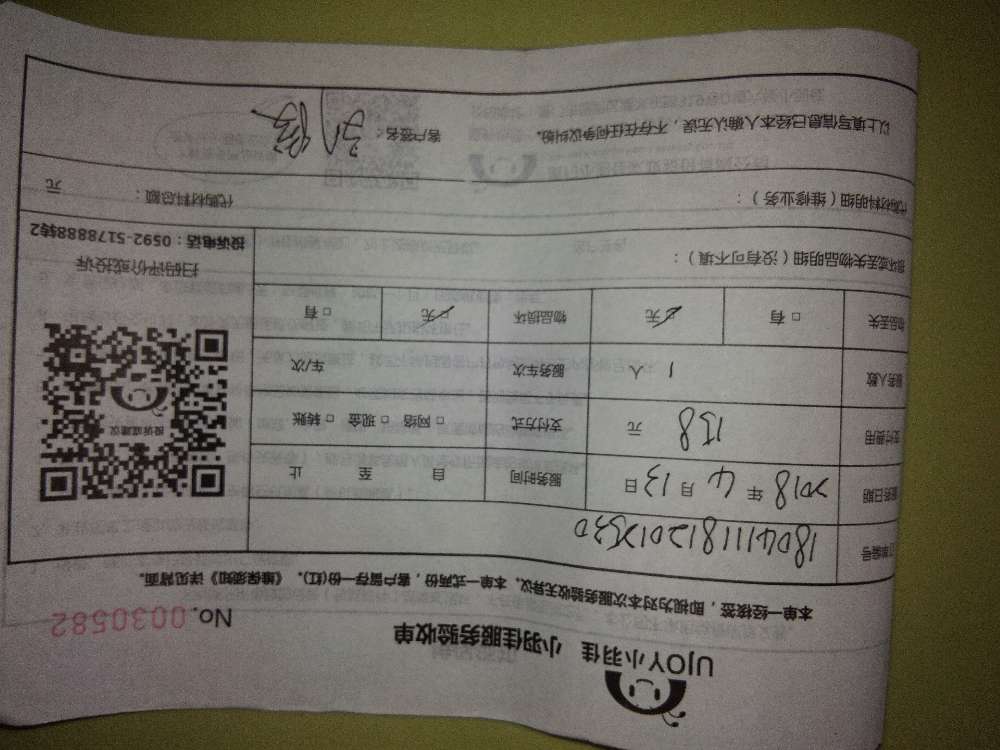 UJOY小羽佳 小羽佳服务验收单
No. 0030582
本单一经核签，即视为对本次服务验收无异议。本单一式两份，客户留存一份(红)。《维保须知》详见背面。
订单编号
服务日期 2018 年 4 月 13 日 服务时间 自 至 止
支付费用 158 元 支付方式 □ 网络 □ 现金 □ 转账
服务人数 1 人 服务车次 车/次
物品丢失 □ 有 □ 无 物品损坏 □ 无 □ 有
投诉或建议
扫码评价或投诉
投诉电话：0592-5178888转2
损坏或丢失物品明细（没有可不填）：
代购材料明细（维修业务）： 代购材料总额： 元
以上填写信息已经本人确认无误，不存在任何争议纠纷。 客户签名：